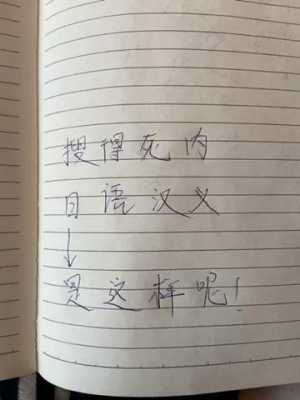 搜得死内
日语汉义
↓
是这样呢!